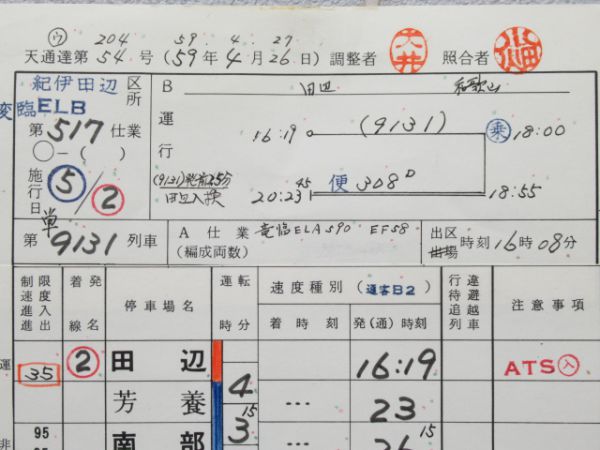 ウ 204 59.4.27
天通達第54号(59年4月26日)調整者 大井 照合者
紀伊田辺 区所
変臨ELB
第517仕業
○−( )
施行日 5/2
B 田辺 和歌山
運行
16:19 (9131) 乗 18:00
(9131)発前25分
田辺入換
20:23 45 便 308D 18:55
単
第9131列車
A 仕業 竜臨ELA590 EF58
(編成両数)
出区 出場 時刻16時08分
制限速度 進入進出
着発線名
停車場名
運転時分
速度種別(通客B2)
着時刻 発(通)時刻
行違 待避 追越 列車
注意事項
運 35 ② 田辺 16:19 ATS入
4
芳養 ... 23
3 15
非 95 南部 ... 26 15